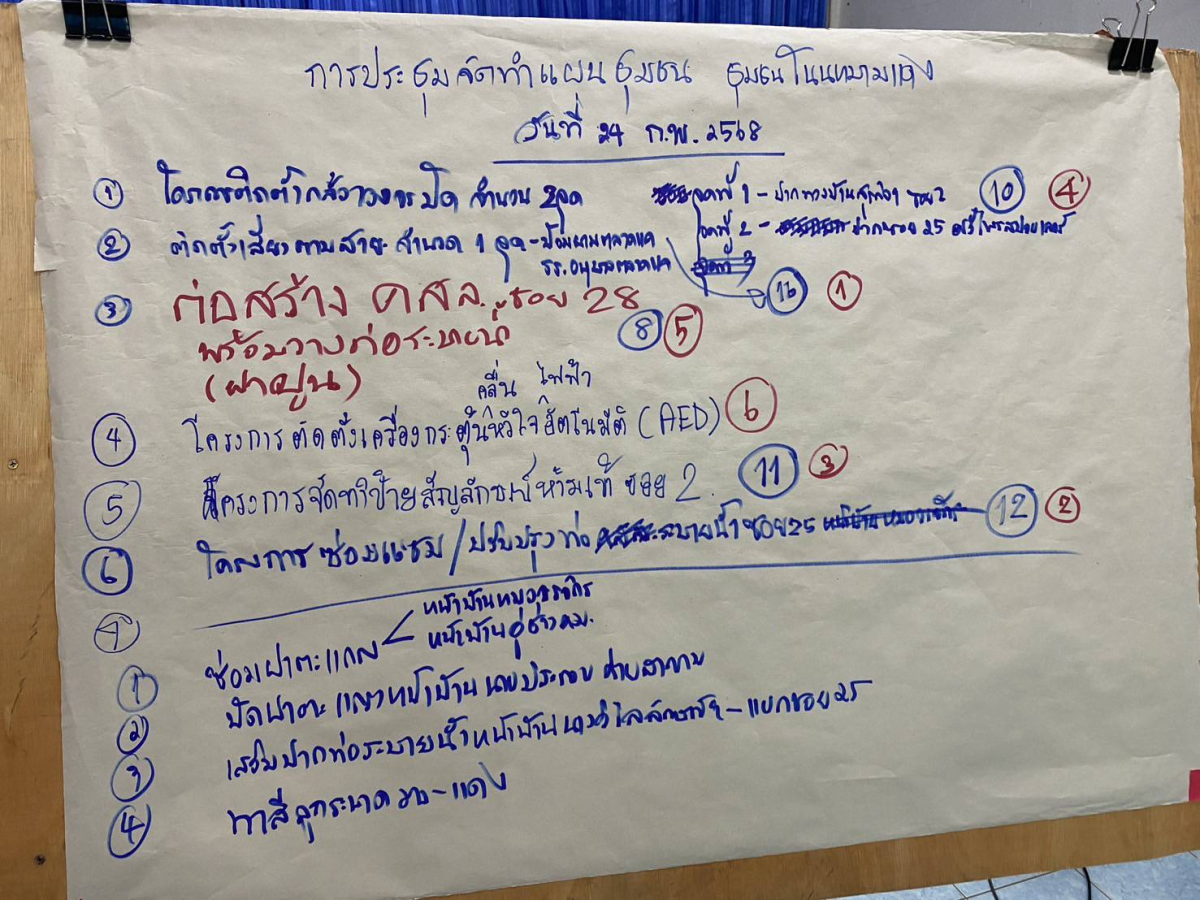 การประชุมจัดทำแผนชุมชน ชุมชนโนนหนามแท่ง
วันที่ 24 ก.พ. 2568
① โครงการติดตั้งกล้องวงจรปิด จำนวน 2 จุด จุดที่ 1 - ปากทางบ้าน ซอย 2 ⑩ ④
② ติดตั้งเสียงตามสาย จำนวน 1 จุด - จุดที่ 2 - ปากซอย 25
รร.อนุบาล จุดที่ 3
③ ก่อสร้าง คสล. ซอย 28 ⑯ ①
พร้อมวางท่อระบายน้ำ ⑧ ⑤
(ฝาปูน)
คลื่น ไฟฟ้า
④ โครงการติดตั้งเครื่องกระตุ้นหัวใจอัตโนมัติ (AED) ⑥
⑤ โครงการจัดทำป้ายสัญลักษณ์ห้ามทิ้ ซอย 2 ⑪ ③
⑥ โครงการซ่อมแซม/ปรับปรุงท่อระบายน้ำซอย 25 ⑫ ②
⑦
หน้าบ้าน
① ซ่อมฝาตะแกรง หน้าบ้านอู่ช่างคม.
② ปิดฝาตะแกรงหน้าบ้านนายประกอบ
③ เสริมปากท่อระบายน้ำหน้าบ้านนางวิไลลักษณ์ - แยกซอย 25
④ ทาสีลูกระนาด ขาว-แดง